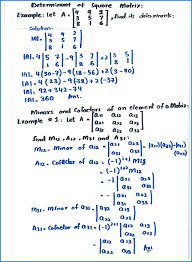 Determinant of Square Matrix:
Example: Let A = 4 9 2 3 5 7 8 1 6, find its determinant.
Solution:
|A| = 4 9 2 3 5 7 8 1 6
|A| = 4 5 7 1 6 - 9 3 7 8 6 + 2 3 5 8 1
|A| = 4(30-7) - 9(18-56) + 2(3-40)
|A| = 4(23) - 9(-38) + 2(-37)
|A| = 92 + 342 - 74
|A| = 360 Ans.
Minors and Cofactors of an element of a Matrix:
Example # 3: Let A = a11 a12 a13 a21 a22 a23 a31 a32 a33
find M12, A12, M31 and A31:
M12 = Minor of a12 = a21 a23 a31 a33
A12 = Cofactor of a12 = (-1)
= (-1)
= - a21 a23 a31 a33
M31 = Minor of a31 = a12 a13 a22 a23
A31 = Cofactor of a31 = (-1) a12 a13 a22 a23
= a12 a13 a22 a23 Ans